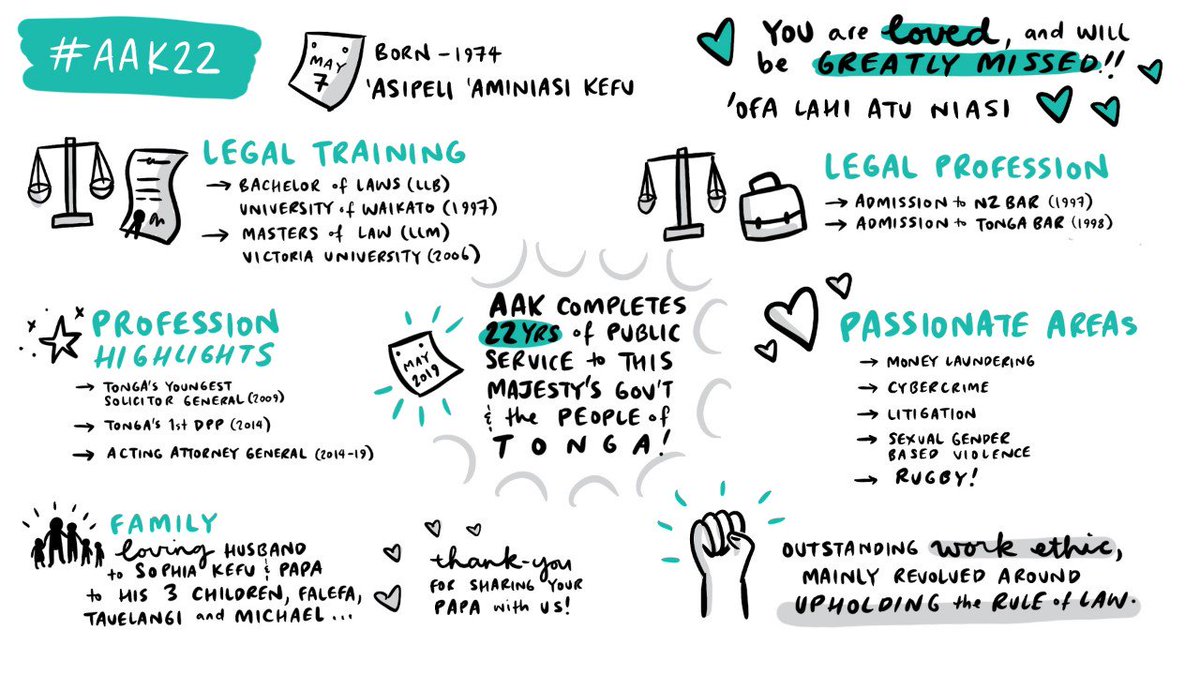 #AAK22
MAY
7
BORN - 1974
'ASIPELI 'AMINIASI KEFU
YOU are loved, and will
be GREATLY MISSED!!
'OFA LAHI ATU NIASI
LEGAL TRAINING
→ BACHELOR of LAWS (LLB)
UNIVERSITY of WAIKATO (1997)
→ MASTERS of LAW (LLM)
VICTORIA UNIVERSITY (2006)
LEGAL PROFESSION
→ ADMISSION to NZ BAR (1997)
→ ADMISSION to TONGA BAR (1998)
PROFESSION
HIGHLIGHTS
→ TONGA'S YOUNGEST
SOLICITOR GENERAL (2009)
→ TONGA'S 1st DPP (2014)
→ ACTING ATTORNEY GENERAL (2014-19)
MAY
2019
AAK COMPLETES
22 YRS of PUBLIC
SERVICE to THIS
MAJESTY'S GOV'T
& the PEOPLE of
TONGA!
PASSIONATE AREAS
→ MONEY LAUNDERING
→ CYBERCRIME
→ LITIGATION
→ SEXUAL GENDER
BASED VIOLENCE
→ RUGBY!
FAMILY
loving HUSBAND
to SOPHIA KEFU & PAPA
to HIS 3 CHILDREN, FALEFA,
TAUELANGI and MICHAEL...
thank-you
FOR SHARING YOUR
PAPA with US!
OUTSTANDING work ethic,
MAINLY REVOLVED AROUND
UPHOLDING the RULE of LAW.